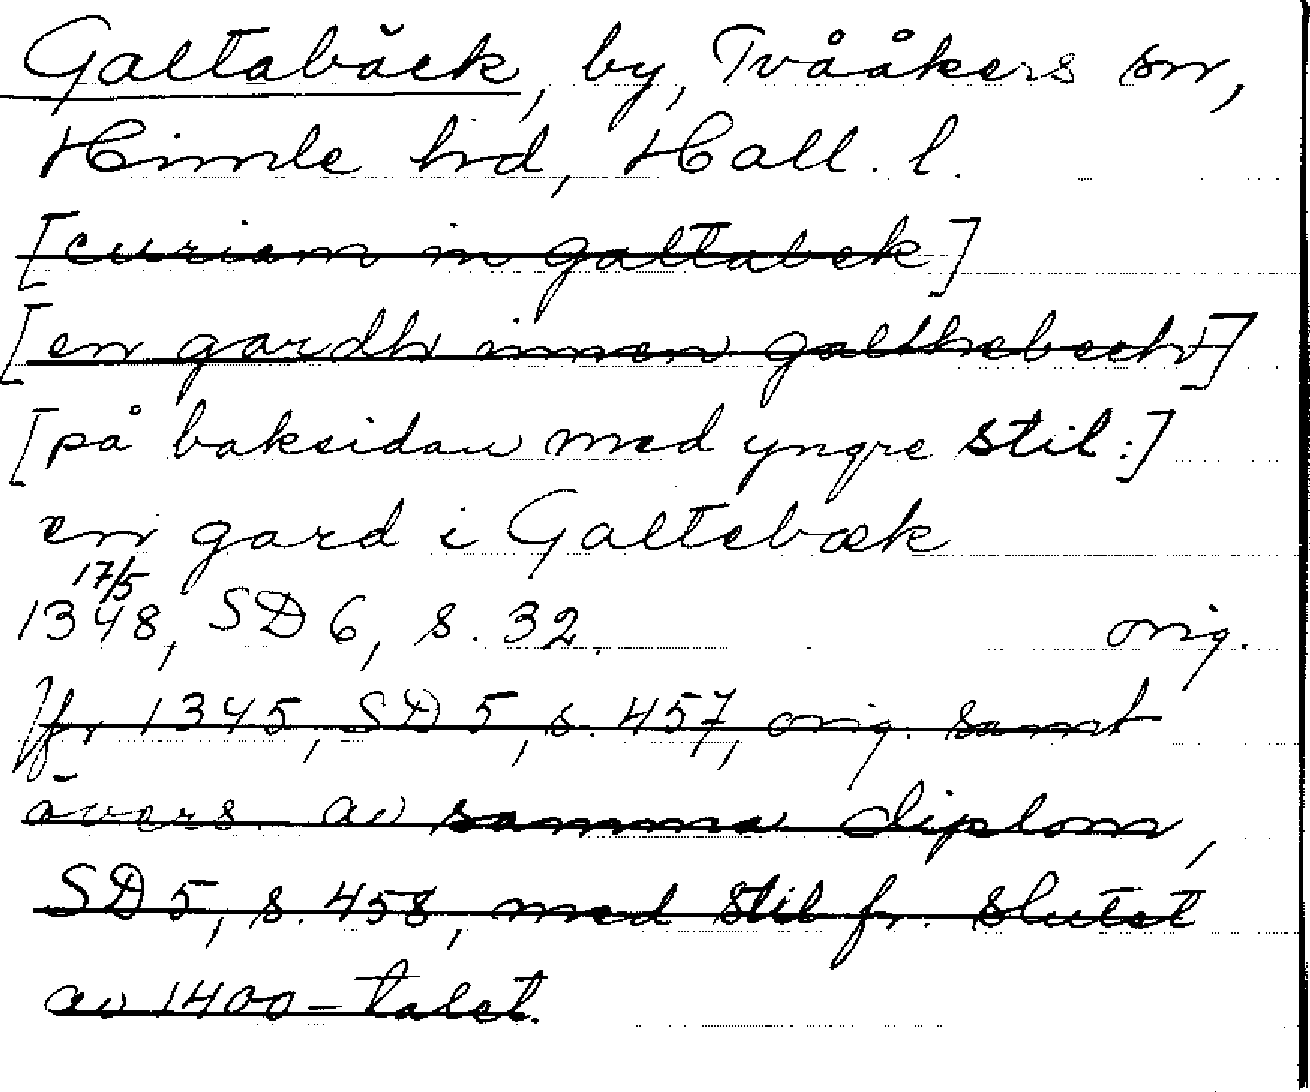 Galtabäck, by, Tvååkers sn,
Himle hrd, Hall. l.
[curiam in galtabek]
[en gardh innan galthebech]
[på baksidan med yngre stil:]
en gard i Galtebæk
17/5
1348, SD 6, s. 32. orig.
Jfr 1345, SD 5, s. 457, orig. samt
övers. av samma diplom,
SD 5, s. 458, med stil fr. slutet
av 1400-talet.